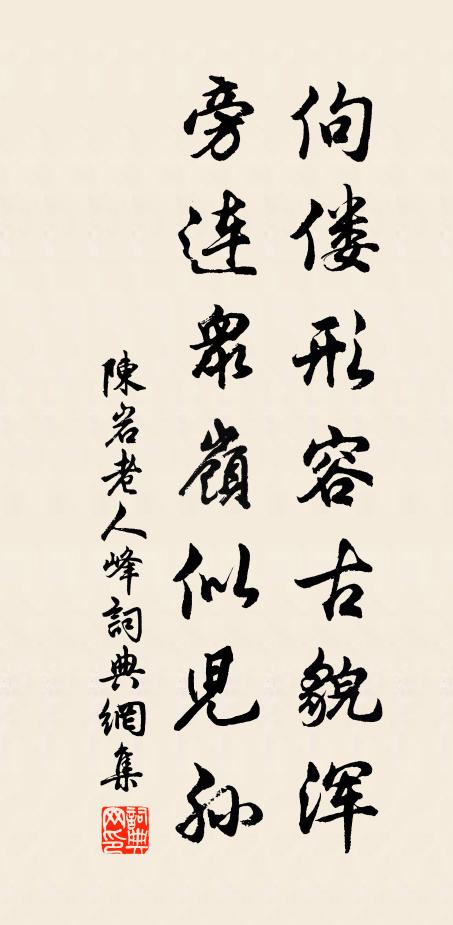 佝偻形容古貌浑
旁连眾嶺似兒孙
陳岩老人峰詞典網集
詞典网印